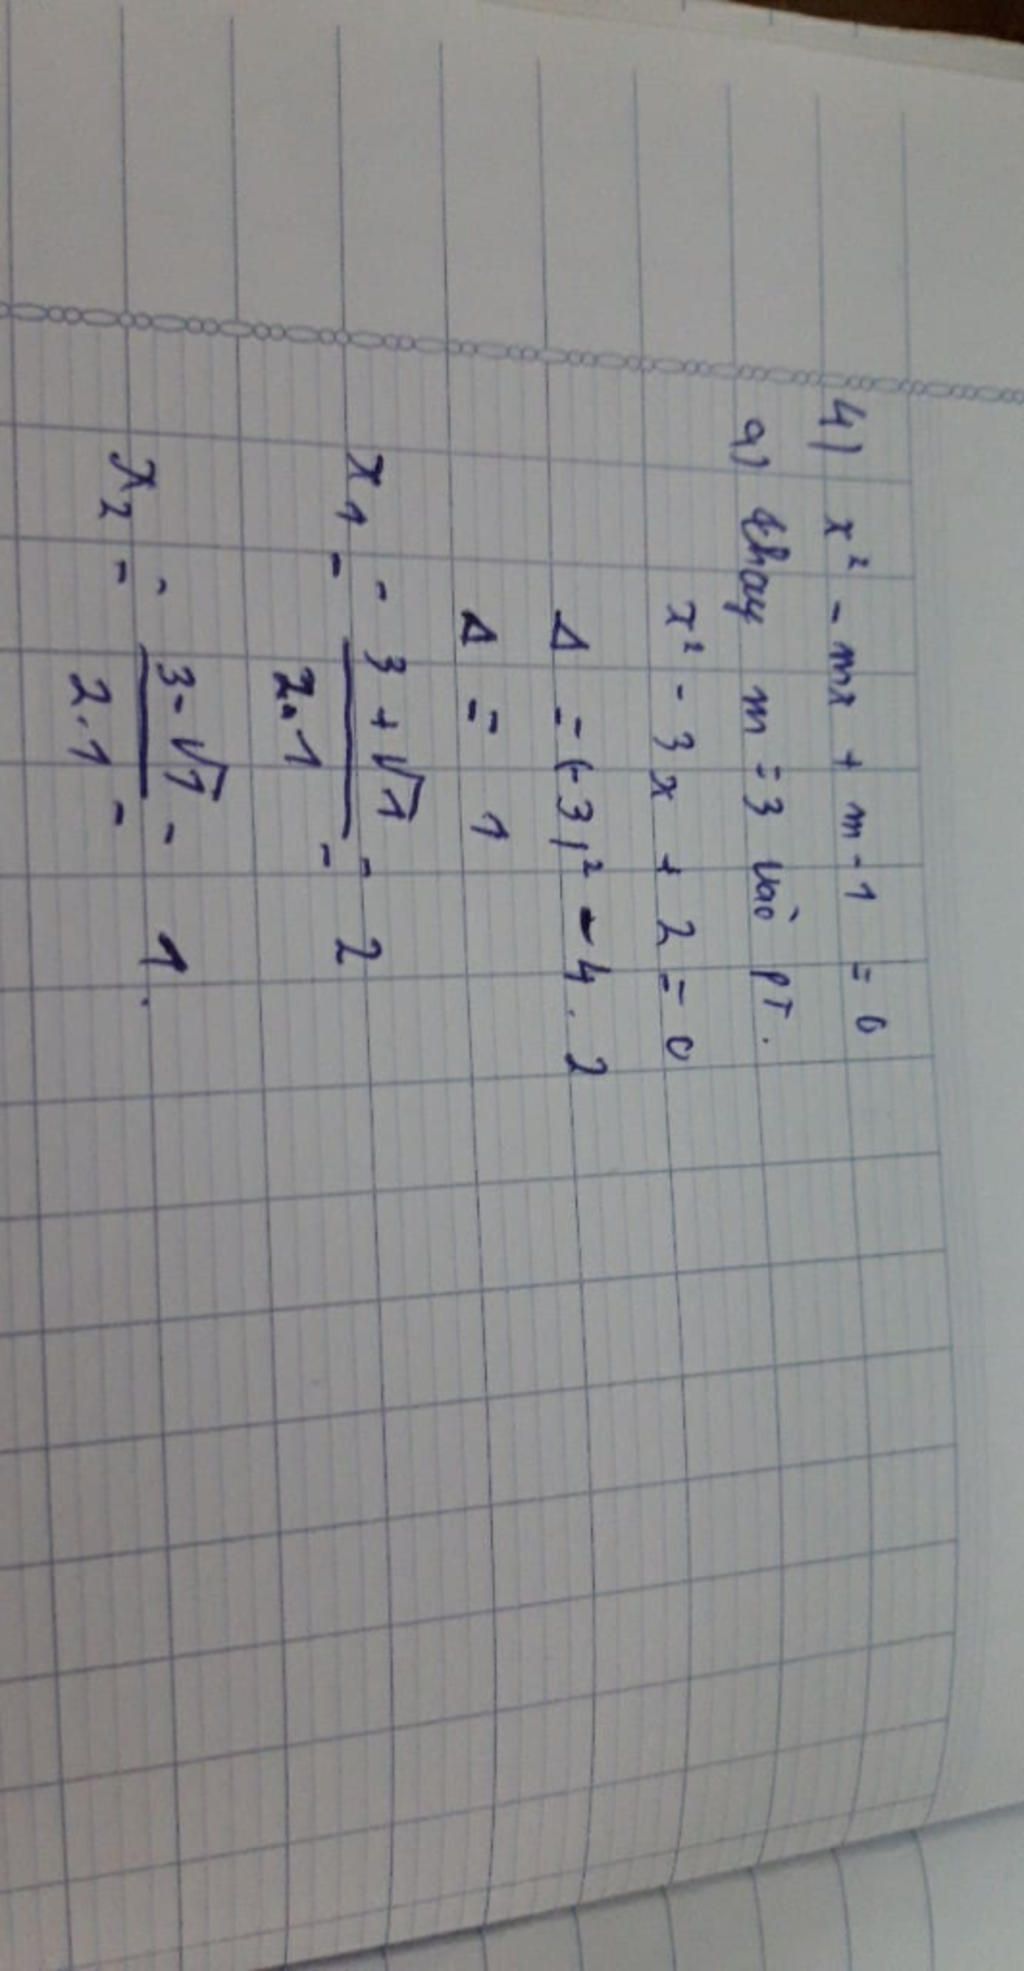 4) x² - mx + m - 1 = 0
a) thay m = 3 vào PT.
x² - 3x + 2 = 0
Δ = (-3)² - 4 . 2
Δ = 1
x₁ = (3 + √1) / (2.1) = 2
x₂ = (3 - √1) / (2.1) = 1.